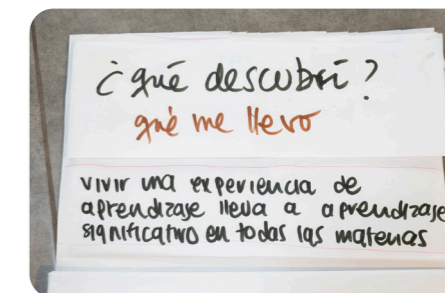 ¿qué descubrí?
qué me llevo
vivir una experiencia de
aprendizaje lleva a aprendizaje
significativo en todas las materias